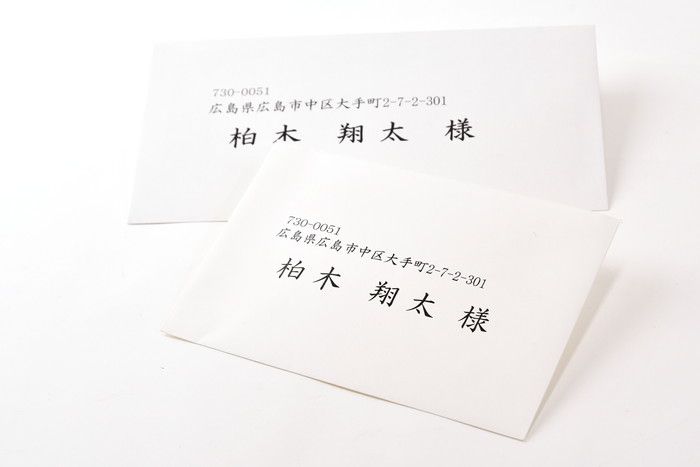 730-0051
広島県広島市中区大手町2-7-2-301
柏木 翔太 様
730-0051
広島県広島市中区大手町2-7-2-301
柏木 翔太 様